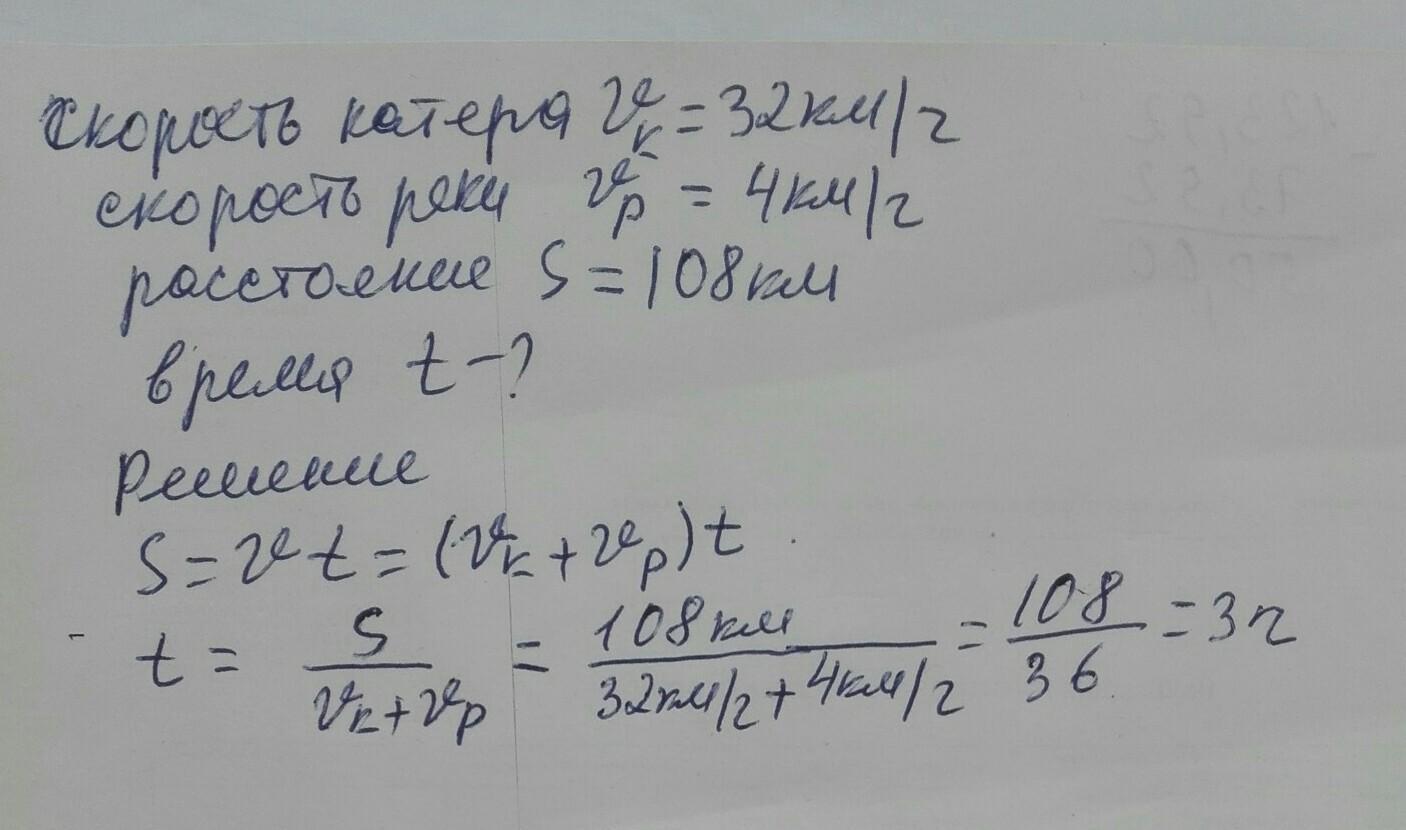 скорость катера v_к = 32 км/ч
скорость реки v_р = 4 км/ч
расстояние S = 108 км
время t - ?
Решение
S = v t = (v_к + v_р) t
t = S / (v_к + v_р) = 108 км / (32 км/ч + 4 км/ч) = 108 / 36 = 3 ч